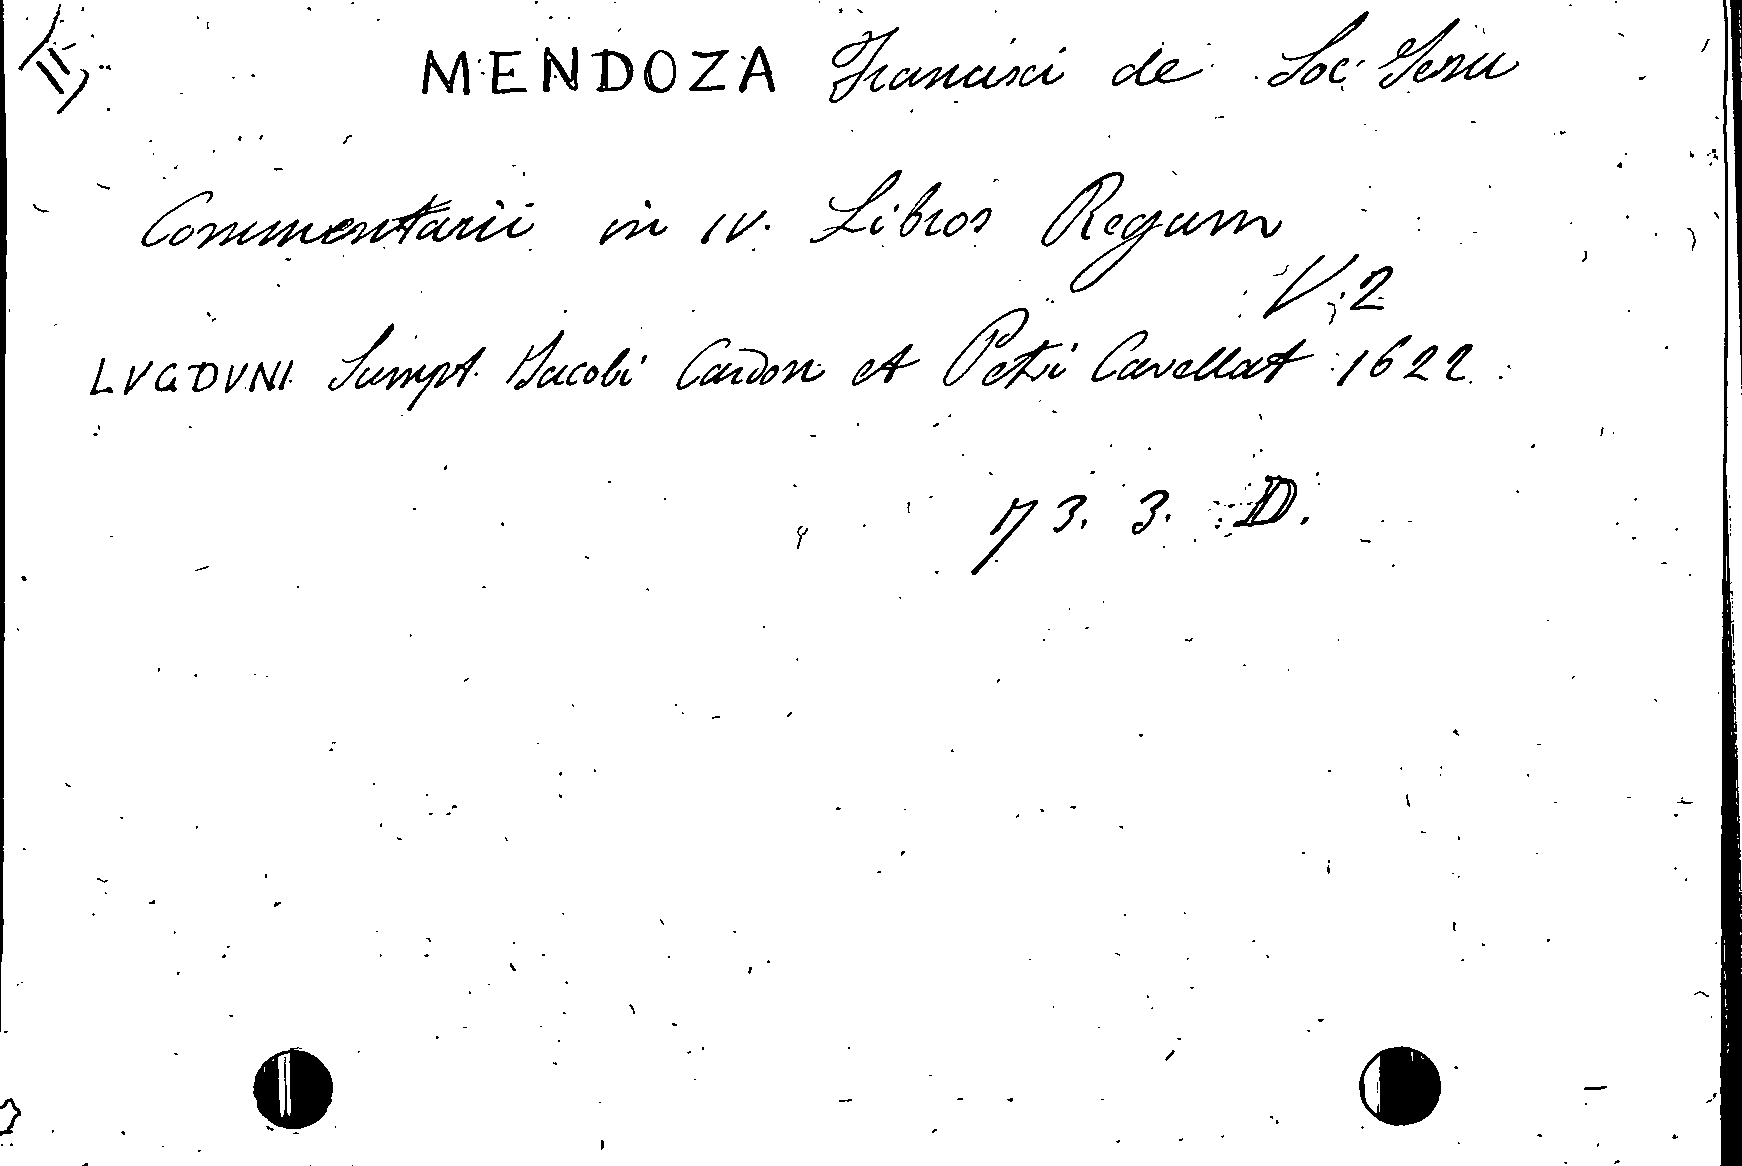 MENDOZA Francisci de Soc. Iesu
Commentarii in IV. Libros Regum
V. 2
LVGDVNI Sumpt. Jacobi Cardon et Petri Cavellat 1622
173. 3. D.